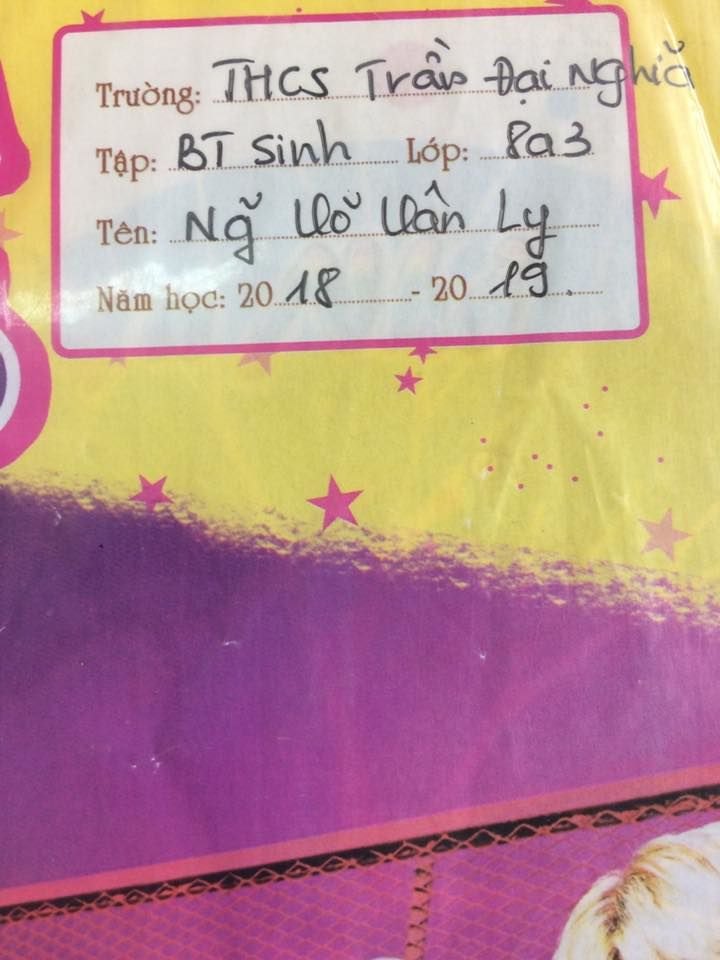 Trường: THCS Trần Đại Nghĩa
Tập: BT Sinh Lớp: 8a3
Tên: Ng̃ Võ Vân Ly
Năm học: 2018 - 2019.